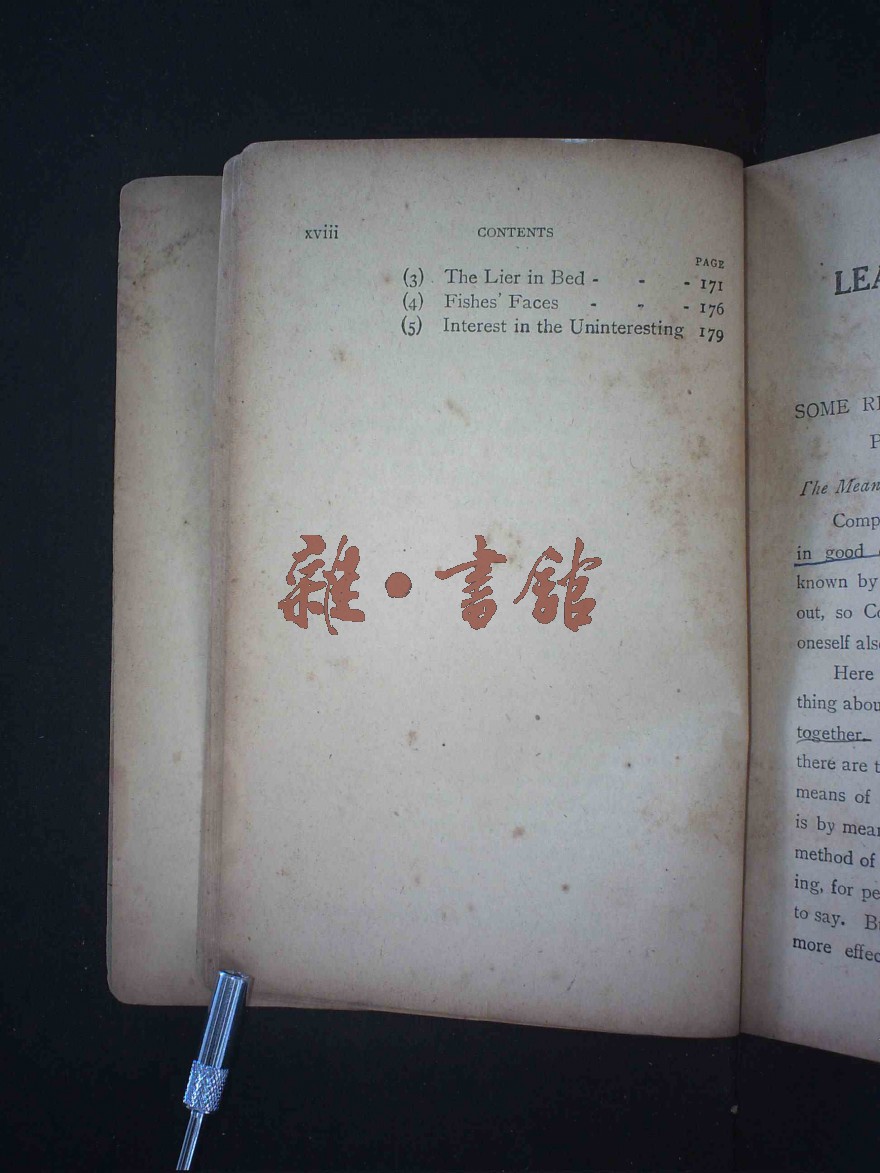 xviii CONTENTS
PAGE
(3) The Lier in Bed - - - 171
(4) Fishes' Faces - - - 176
(5) Interest in the Uninteresting 179
雜·書館
SOME
The
in good
known by
out, so
oneself
Here
thing
together.
there are
means of
is by
method of
ing, for
to say.
more